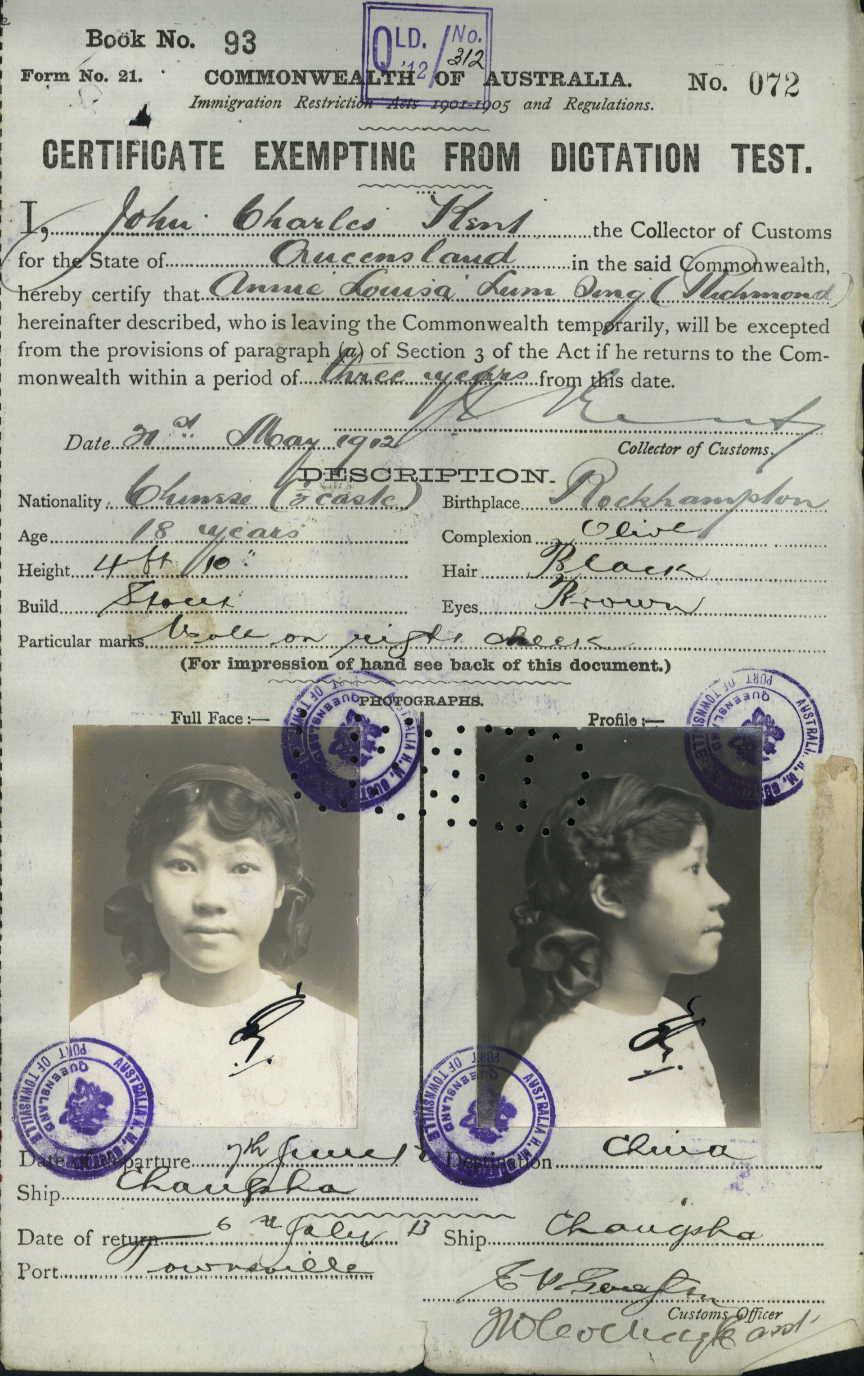 Book No. 93
QLD. '12/No. 312
Form No. 21. COMMONWEALTH OF AUSTRALIA. No. 072
Immigration Restriction Acts 1901-1905 and Regulations.
CERTIFICATE EXEMPTING FROM DICTATION TEST.
I, John Charles Kent the Collector of Customs
for the State of Queensland in the said Commonwealth,
hereby certify that Annie Louisa Lum Sing (Richmond)
hereinafter described, who is leaving the Commonwealth temporarily, will be excepted
from the provisions of paragraph (a) of Section 3 of the Act if he returns to the Com-
monwealth within a period of three years from this date.
Date 21st May 1912
Collector of Customs.
DESCRIPTION.
Nationality Chinese (½ caste) Birthplace Rockhampton
Age 18 years Complexion Olive
Height 4 ft 10" Hair Black
Build Stout Eyes Brown
Particular marks Mole on right cheek
(For impression of hand see back of this document.)
PHOTOGRAPHS.
Full Face :— Profile :—
AUSTRALIA H.M. CUSTOMS PORT OF TOWNSVILLE QUEENSLAND
AUSTRALIA H.M. CUSTOMS PORT OF TOWNSVILLE QUEENSLAND
AUSTRALIA H.M. CUSTOMS PORT OF TOWNSVILLE QUEENSLAND
AUSTRALIA H.M. CUSTOMS PORT OF TOWNSVILLE QUEENSLAND
Date of departure 7th June 12 Destination China
Ship Changsha
Date of return 6th July 13 Ship Changsha
Port Townsville
Customs Officer